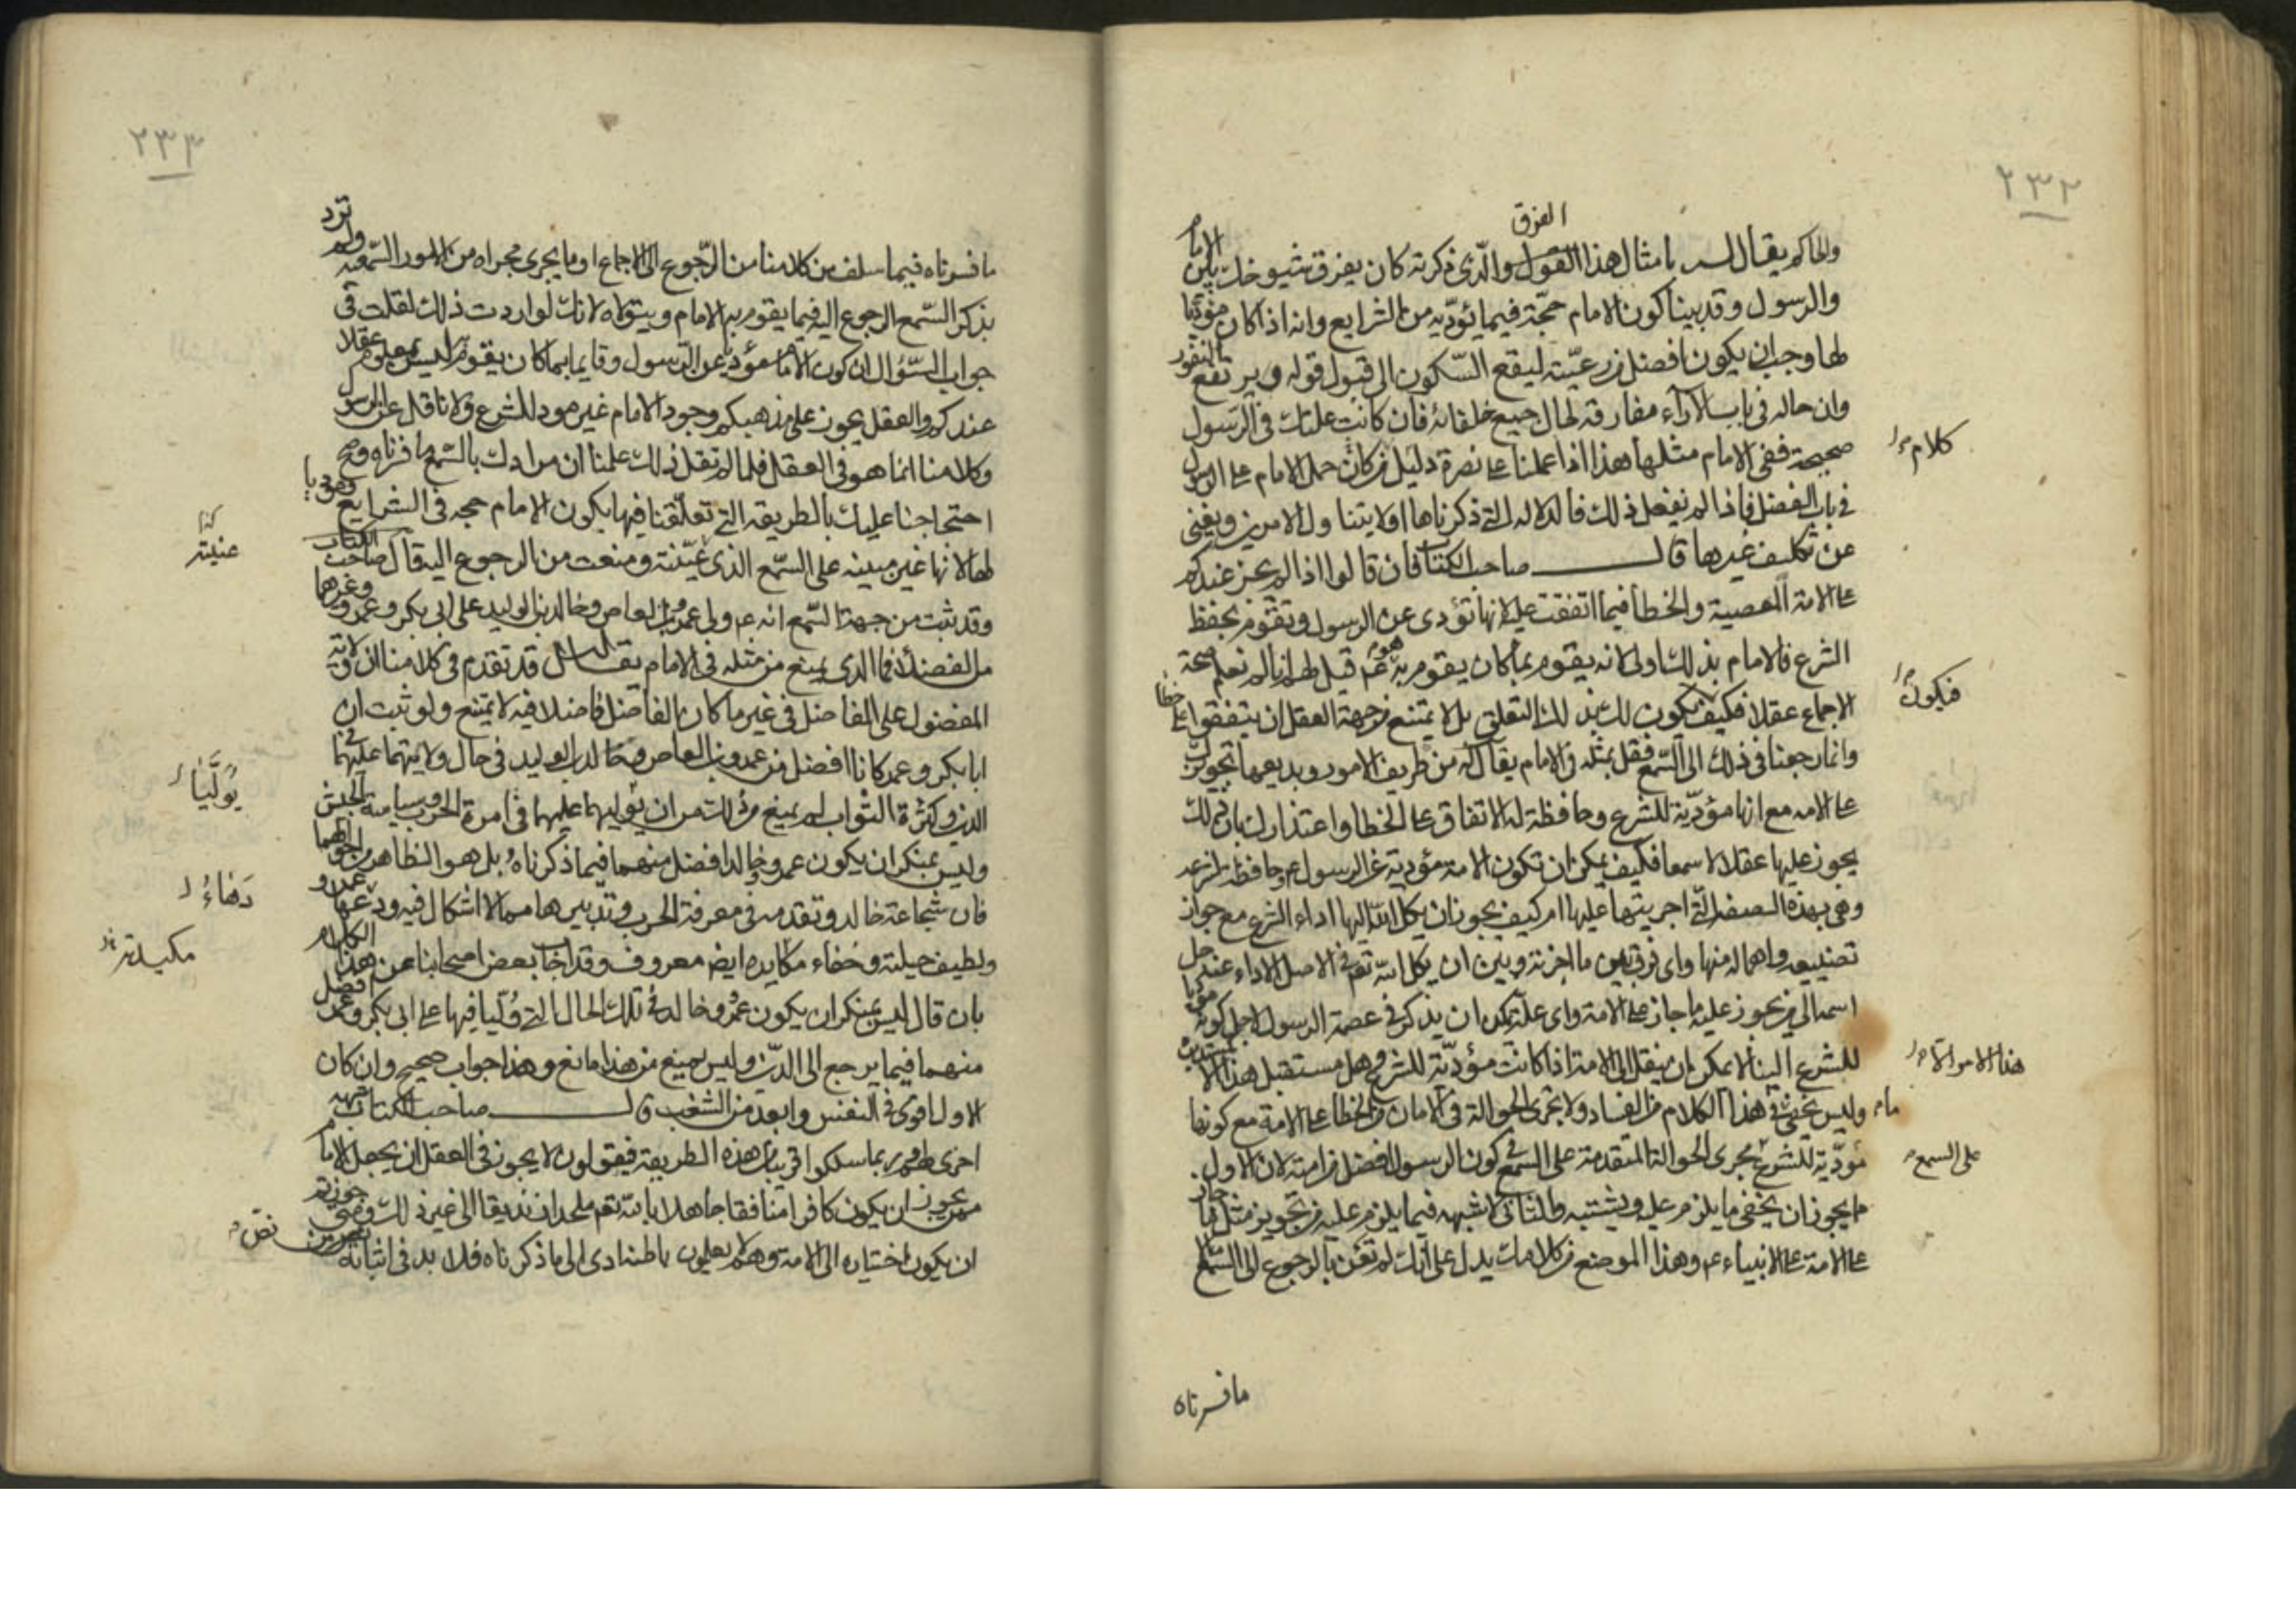 ٢٣٢
الفرق
والحاكم يقال له بامثال هذا القول والذى ذكرته كان يفرق شيوخك بين الامام
والرسول وقد بينا كون الامام حجّة فيما يؤدّيه من الشرايع وانه اذا كان مؤدّيا
لها وجب ان يكون افضل من رعيّته ليقع السّكون الى قبول قوله ويرتفع النفور
وان حاله فى باب الآراء مفارقة لحال جميع خلفائه فان كانت علتك فى الرّسول
صحيحة ففى الامام مثلها هذا اذا عملنا على نصرة دليل من كان حمل الامام على الرسول
فى باب الفضل فاذا لم نفعل ذلك فالدلالة التى ذكرناها اولا يتناول الامرين ويغنى
عن تكلف غيرها قال صاحب الكتاب فان قالوا اذا لم يجز عندكم
على الامة المعصية والخطأ فيما اتفقت عليه لانها تؤدى عن الرسول وتقوم بحفظ
الشرع فالامام بذلك اولى لانه يقوم بما كان يقوم به هو عم قيل لهم انا لم نعلم صحة
الاجماع عقلا فكيف يكون لك بذلك التعلق بل لا يمتنع من جهة العقل ان يتفقوا على خطا
وانما رجعنا فى ذلك الى السّمع فقل بمثله فى الامام يقال له من طريف الامور وبديعها تجويزك
على الامه مع انها مؤدّية للشرع وحافظة له الاتفاق على الخطا واعتذارك بان ذلك
يجوز عليها عقلا لا سمعا فكيف يمكن ان تكون الامة مؤدية عن الرسول عم وحافظة لشرعه
وهى بهذه الصفة التى اجريتها عليها ام كيف يجوز ان يكل الله اليها اداء الشرع مع جواز
تضييعه واهماله منها واى فرق بين ما اجزته وبين ان يكل الله تعم فى الاصل الاداء عنه جل
اسمه الى من يجوز عليه ما جاز على الامة واى علة يمكن ان يذكر فى عصمة الرسول لاجل كونه مؤديا
للشرع الينا لا يمكن ان ينقل الى الامة اذا كانت مؤدّية للشرع وهل مستقبل هذا الا
وليس يخفى ما فى هذا الكلام من الفساد ولا تجرى الحوالة فى الامان من الخطا على الامة مع كونها
مؤدّية للشرع مجرى الحوالة المتقدمة على السمع فى كون الرسول افضل من امته لان الاول
ما يجوز ان يخفى ما يلزم عليه ويشتبه والثانى لا شبهه فيما يلزم عليه من تجويز مثل ما جاز
على الامة على الانبياء عم وهذا الموضع من كلامك يدل على انك لم تعن بالرجوع الى السمع
كلام
فيكون
هذا الامر الا
على السمع
ما فسرناه
٢٣٣
ما فسرناه فيما سلف من كلامنا من الرّجوع الى الاجماع او ما يجرى مجراه من الامور السّمعيه ولم ترد
بذكر السّمع الرجوع اليه فيما يقوم به الامام ويتولاه لانك لو اردت ذلك لقلت فى
جواب السّؤال ان كون الامام مؤديا عن الرسول وقايما بما كان يقوم به ليس بمعلوم عقلا
عندكم والعقل يجوز على مذهبكم وجود الامام غير مود للشرع ولا ناقل عن الرسول
وكلامنا انما هو فى العقل فلما لم تقل ذلك علمنا ان مرادك بالسّمع ما فسرناه وصح
احتجاجنا عليك بالطريقه التى تعلّقنا فيها بكون الامام حجه فى الشرايع ومؤديا
لها لانها غير مبنيه على السّمع الذى عيّنته ومنعت من الرجوع اليه قال صاحب الكتاب
وقد ثبت من جهة السّمع انه عم ولى عمرو بن العاص وخالد بن الوليد على ابى بكر وعمر وغيرهما
من الفضلاء فما الذى يمنع من مثله فى الامام يقال له قد تقدم فى كلامنا ان ولاية
المفضول على الفاضل فى غير ما كان الفاضل فاضلا فيه لا يمتنع ولو ثبت ان
ابا بكر وعمر كانا افضل من عمرو بن العاص وخالد بن الوليد فى حال ولايتهما عليهما فى
الدين وكثرة الثواب لم يمنع ذلك من ان يوليهما عليهما فى امرة الحرب وسياسة الجيش
وليس بمنكر ان يكون عمرو وخالد افضل منهما فيما ذكرناه بل هو الظاهر من احوالهما
فان شجاعة خالد وتقدمه فى معرفة الحرب وتدبيرها مما لا اشكال فيه ودهاء عمرو
ولطيف حيلته وخفاء مكايده ايض معروف وقد اجاب بعض اصحابنا عن هذا الكلام
بان قال ليس بمنكر ان يكون عمرو وخالد فى تلك الحال التى وُلّيا فيها على ابى بكر وعمر افضل
منهما فيما يرجع الى الدّين وليس يمنع من هذا مانع وهذا جواب صحيح وان كان
الاول اقوى فى النفس وابعد من الشغب قال صاحب الكتاب شبهه
اخرى لهم وربما سلكوا قريبا من هذه الطريقة فيقولون لا يجوز فى العقل ان يجعل الامام
ممن يجوز ان يكون كافرا منافقا جاهلا بالله تعم ملحدا زنديقا الى غير ذلك ومتى جوزتم
ان يكون اختياره الى الامة وهم لا يعلمون باطنه ادى الى ما ذكرناه فلا بد فى اثباته
كذا
عنيته
يُولَّيَا
دَهَاءُ
مكيدته
نصّ